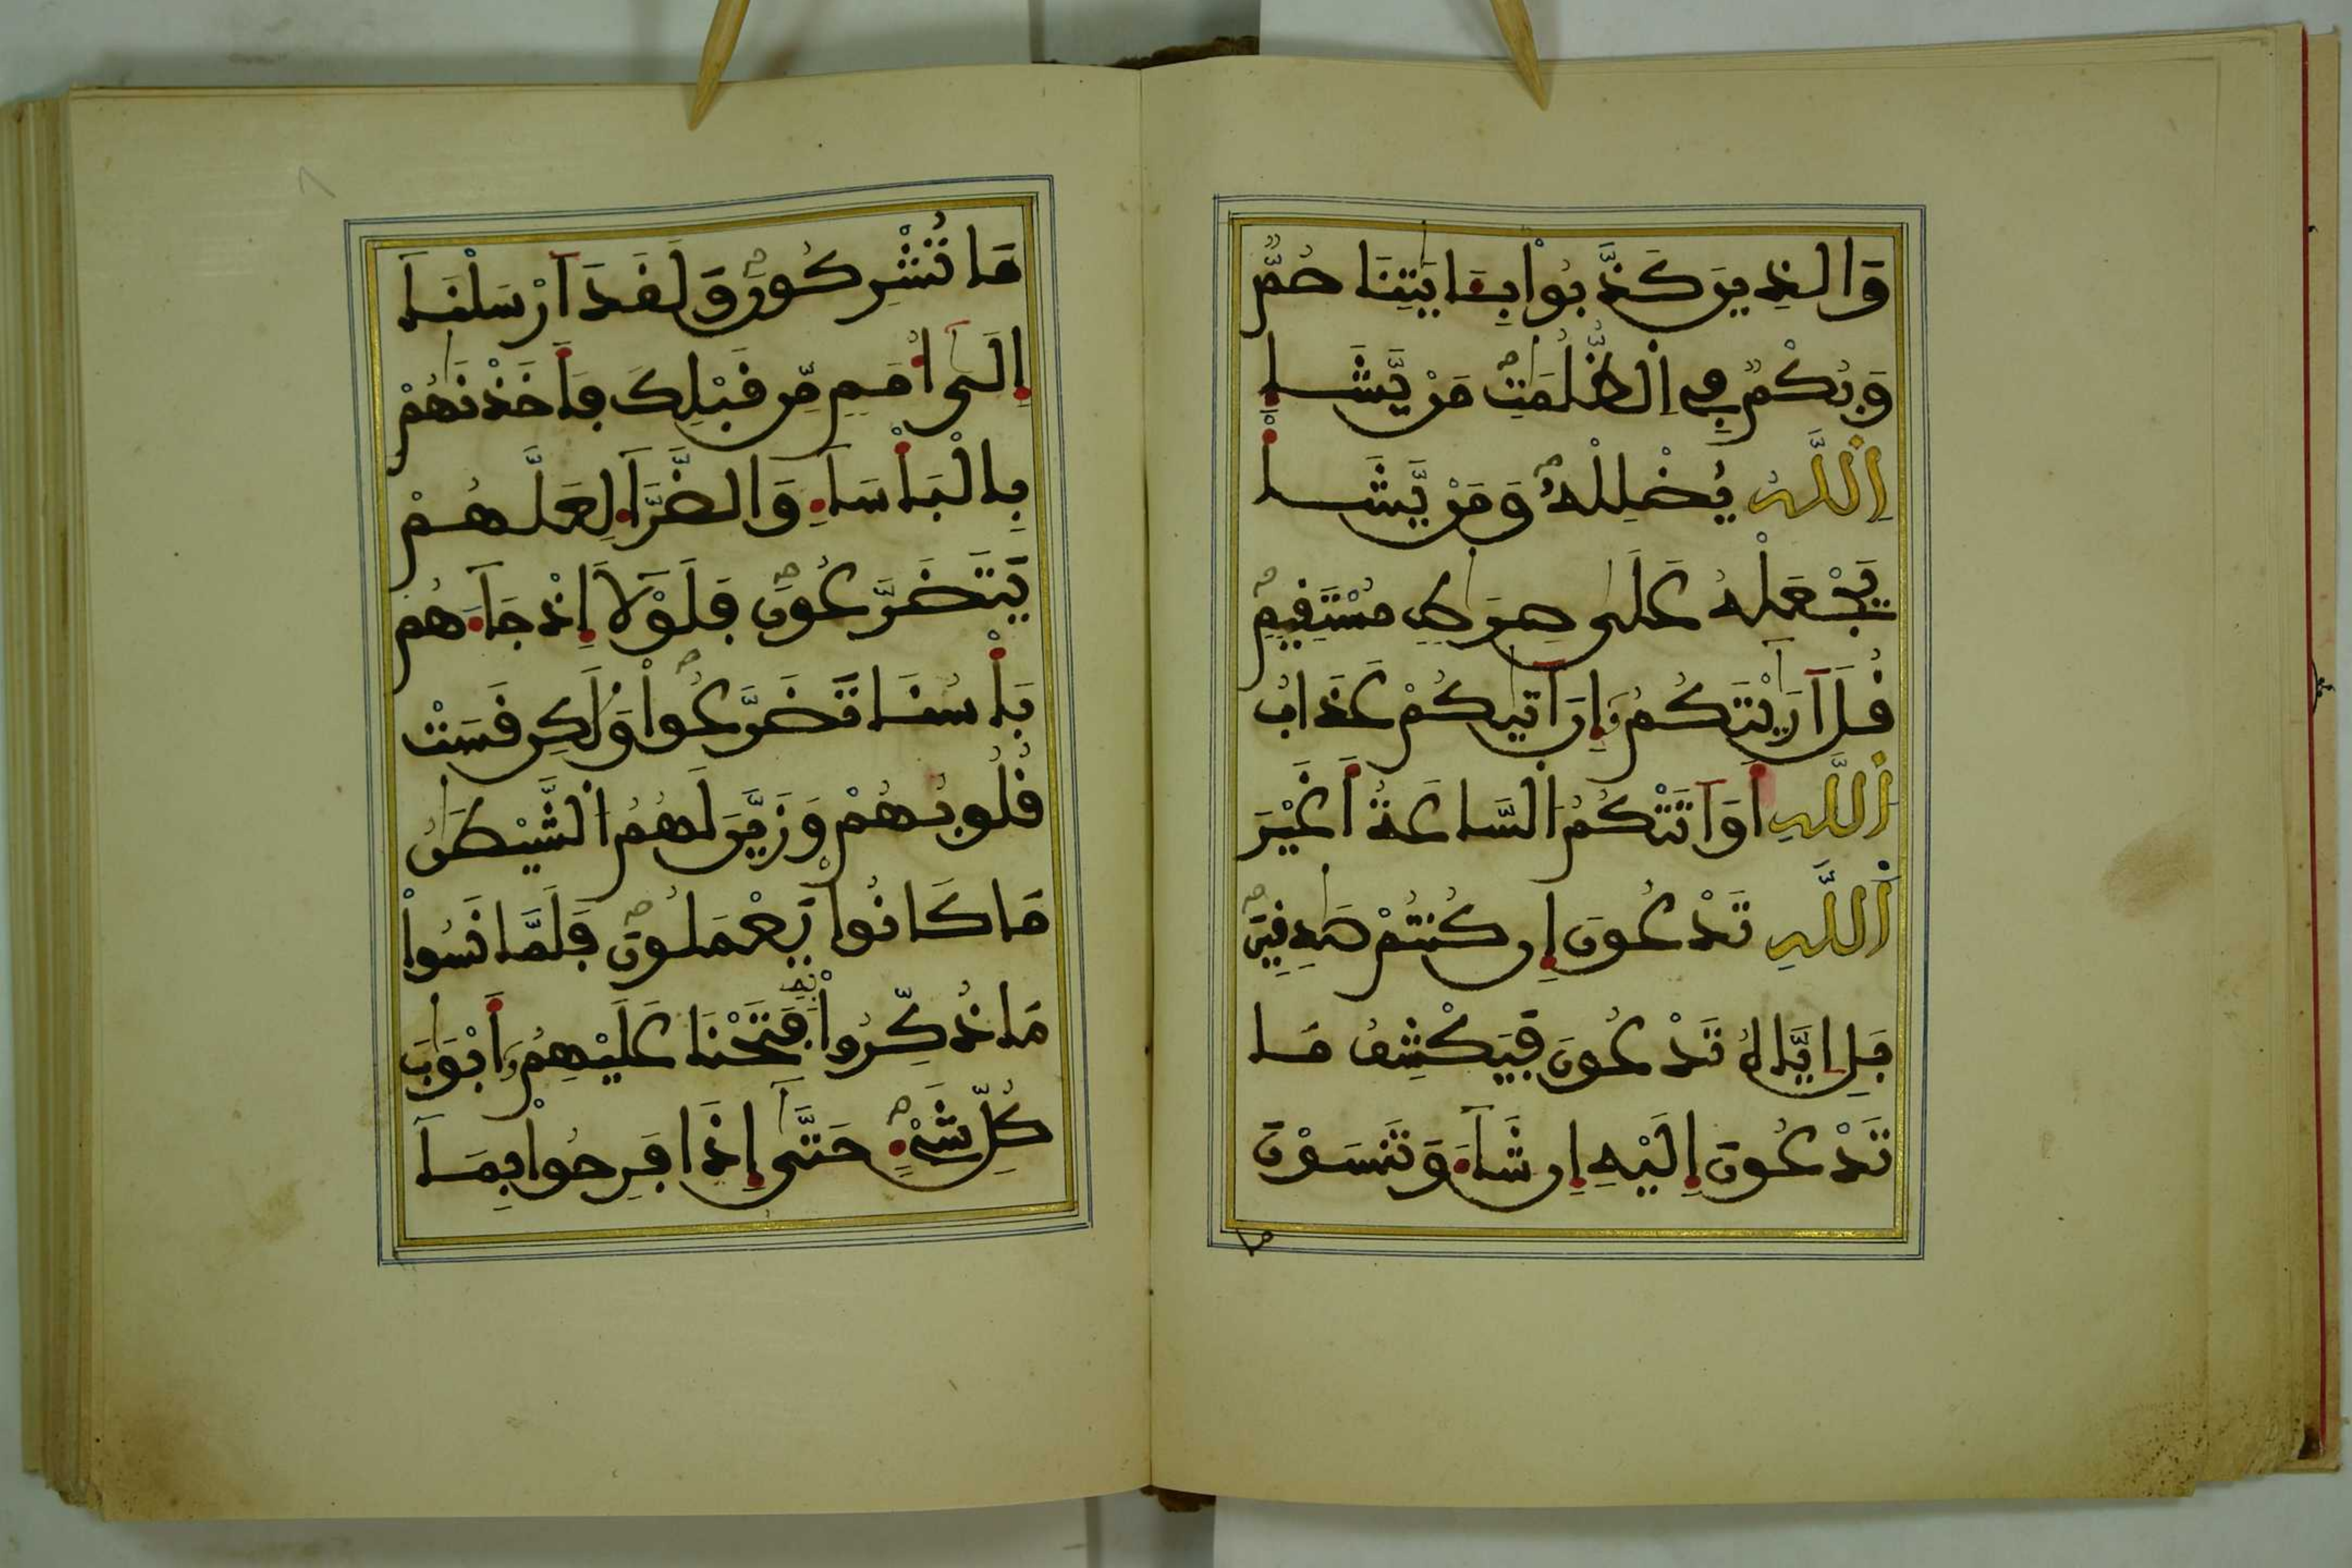 وَالذِينَ كَذَّبُواْ بِـَٔايَٰتِنَا صُمّٞ
وَبُكْمٞ فِے اِ۬لظُّلُمَٰتِۖ مَنْ يَّشَإِ
اِ۬للَّهُ يُضْلِلْهُۖ وَمَنْ يَّشَأْ
يَجْعَلْهُ عَلَىٰ صِرَٰطٖ مُسْتَقِيمٖۖ
قُلَ اَرَٰٓيْتَكُمُۥٓ إِنَ اَت۪يٰكُمْ عَذَابُ
اُ۬للَّهِ أَوَ اَتَتْكُمُ اُ۬لسَّاعَةُ أَغَيْرَ
اَ۬للَّهِ تَدْعُونَ إِن كُنتُمْ صَٰدِقِينَۖ
بَلِ اِيَّاهُ تَدْعُونَ فَيَكْشِفُ مَا
تَدْعُونَ إِلَيْهِ إِن شَآءَ وَتَنسَوْنَ
ما
مَا تُشْرِكُونَۖ وَلَقَدَ اَرْسَلْنَآ
إِلَىٰٓ أُمَمٖ مِّن قَبْلِكَ فَأَخَذْنَٰهُمْ
بِالْبَأْسَآءِ وَالضَّرَّآءِ لَعَلَّهُمْ
يَتَضَرَّعُونَۖ فَلَوْلَآ إِذْ جَآءَهُم
بَأْسُنَا تَضَرَّعُواْۖ وَلَٰكِن قَسَتْ
قُلُوبُهُمْ وَزَيَّنَ لَهُمُ اُ۬لشَّيْطَٰنُ
مَا كَانُواْ يَعْمَلُونَۖ فَلَمَّا نَسُواْ
مَا ذُكِّرُواْ بِهِۦ فَتَحْنَا عَلَيْهِمُۥٓ أَبْوَٰبَ
كُلِّ شَےْءٍۖ حَتَّىٰٓ إِذَا فَرِحُواْ بِمَآ